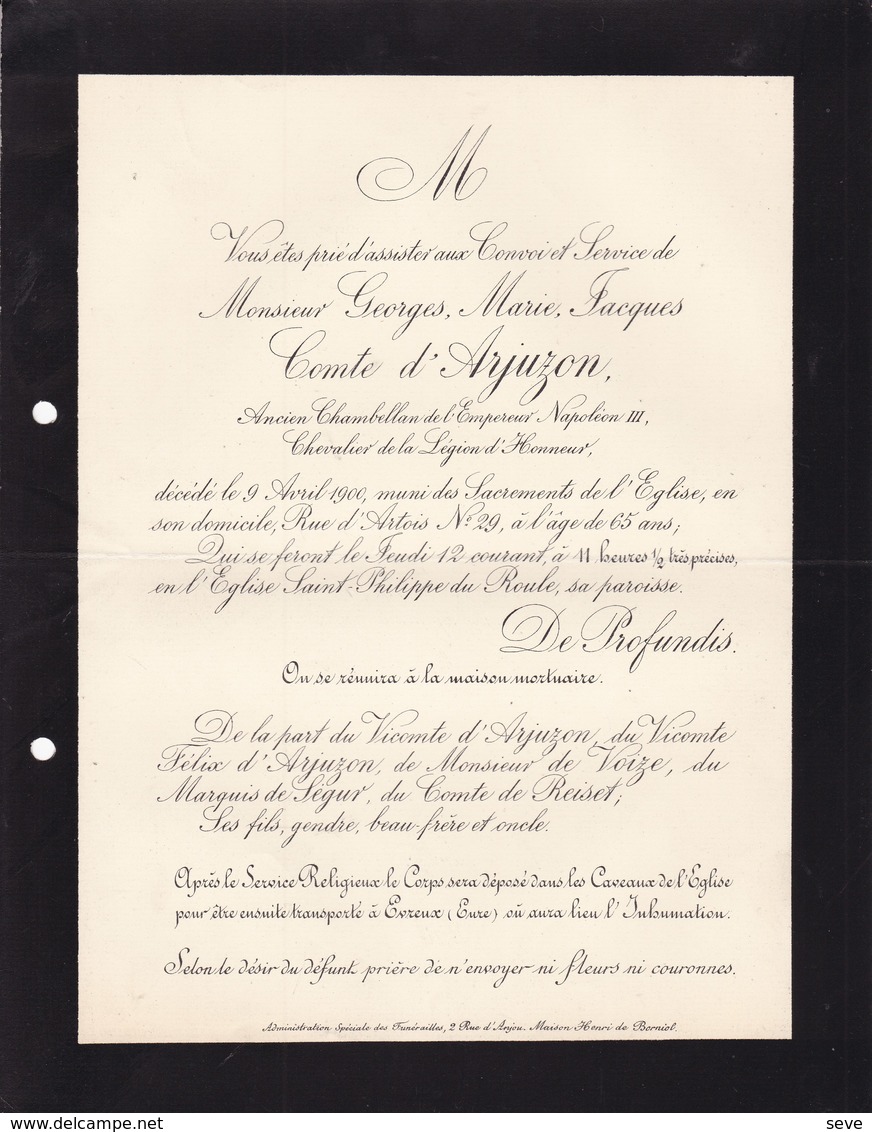 M
Vous êtes prié d'assister aux Convoi et Service de
Monsieur Georges, Marie, Jacques
Comte d'Arjuzon,
Ancien Chambellan de l'Empereur Napoléon III,
Chevalier de la Légion d'Honneur,
décédé le 9 Avril 1900, muni des Sacrements de l'Eglise, en
son domicile, Rue d'Artois No. 29, à l'âge de 65 ans;
Qui se feront le Jeudi 12 courant, à 11 heures 1/2 très précises,
en l'Eglise Saint-Philippe du Roule, sa paroisse.
De Profundis.
On se réunira à la maison mortuaire.
De la part du Vicomte d'Arjuzon, du Vicomte
Félix d'Arjuzon, de Monsieur de Voize, du
Marquis de Ségur, du Comte de Reiset;
Ses fils, gendre, beau-frère et oncle.
Après le Service Religieux le Corps sera déposé dans les Caveaux de l'Eglise
pour être ensuite transporté à Evreux (Eure) où aura lieu l'Inhumation.
Selon le désir du défunt prière de n'envoyer ni fleurs ni couronnes.
Administration Spéciale des Funérailles, 2 Rue d'Anjou. Maison Henri de Borniol.
delcampe.net
seve